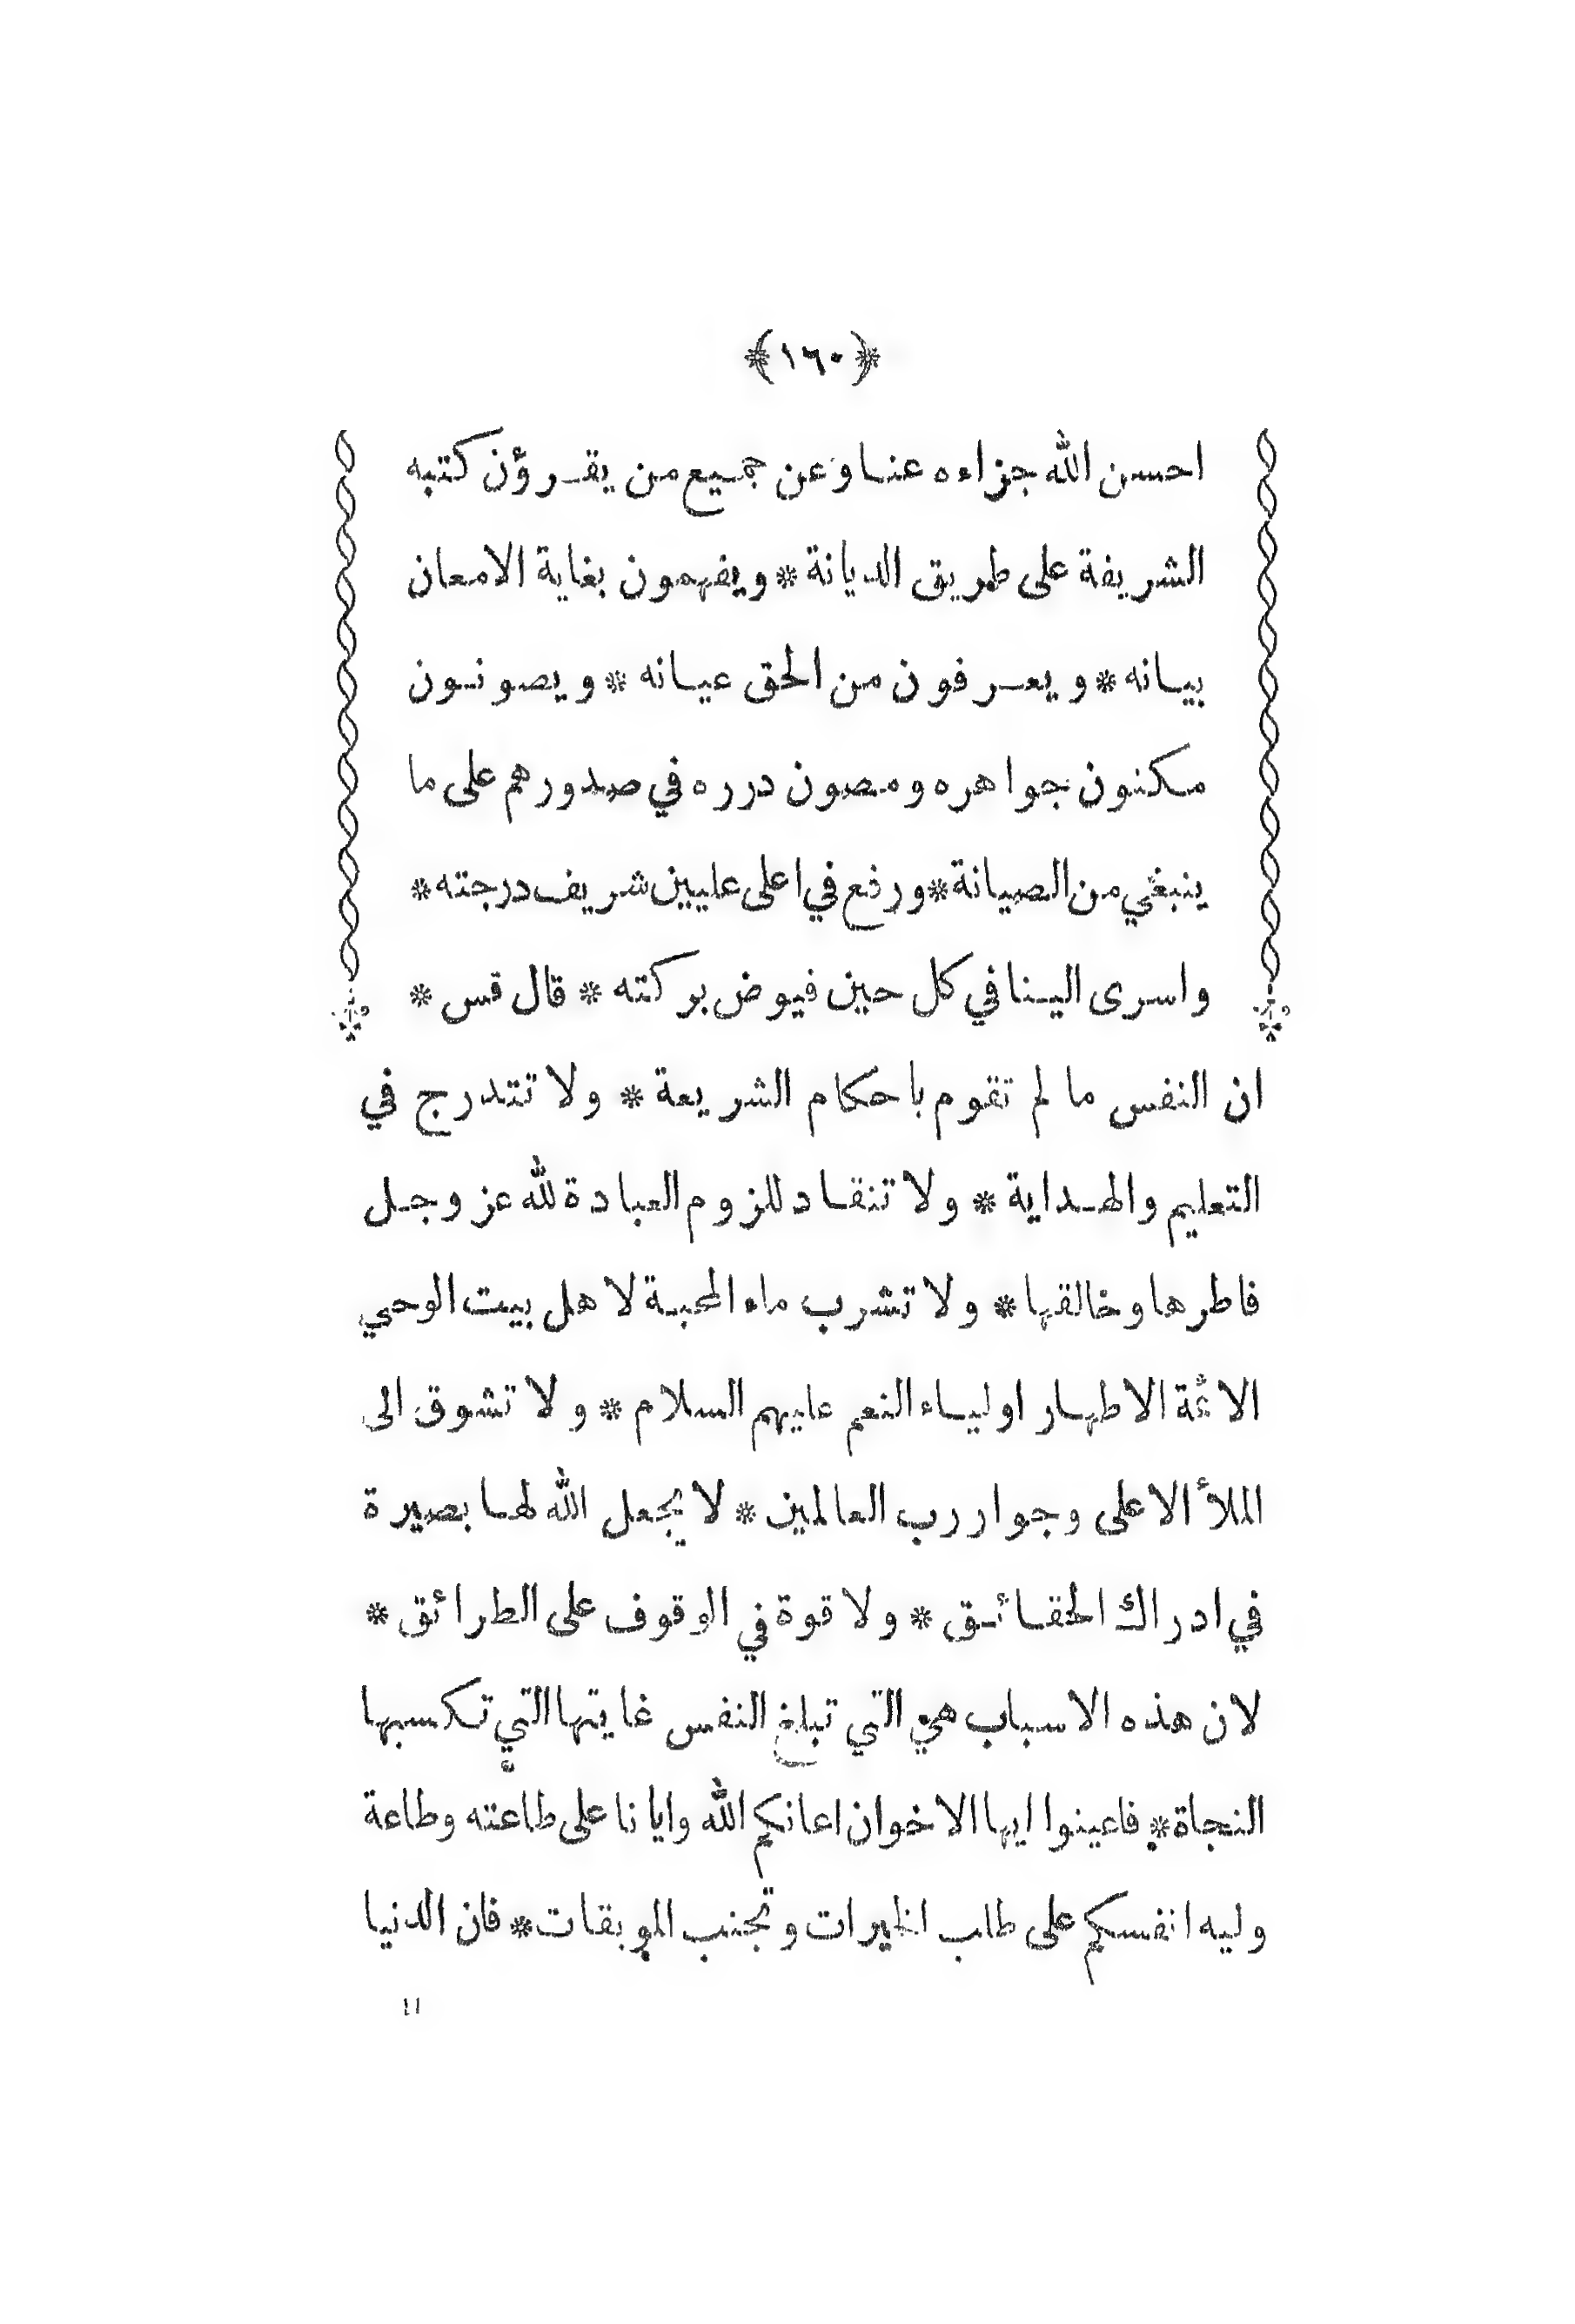 ﴿١٦٠﴾
احسن الله جزاءه عنا وعن جميع من يقرؤن كتبه
الشريفة على طريق الديانة * ويفهمون بغاية الامعان
بيانه * ويعرفون من الحق عيانه * ويصونون
مكنون جواهره ومصون درره في صدورهم على ما
ينبغي من الصيانة * ورفع في اعلى عليين شريف درجته *
واسرى الينا في كل حين فيوض بركته * قال قس *
ان النفس ما لم تقوم باحكام الشريعة * ولا تتدرج في
التعليم والهداية * ولا تنقاد للزوم العبادة لله عز وجل
فاطرها وخالقها * ولا تشرب ماء المحبة لاهل بيت الوحي
الائمة الاطهار اولياء النعم عليهم السلام * ولا تشوق الى
الملأ الاعلى وجوار رب العالمين * لا يجعل الله لها بصيرة
في ادراك الحقائق * ولا قوة في الوقوف على الطرائق *
لان هذه الاسباب هي التي تبلغ النفس غايتها التي تكسبها
النجاة * فاعينوا ايها الاخوان اعانكم الله وايانا على طاعته وطاعة
وليه انفسكم على طلب الخيرات وتجنب الموبقات * فان الدنيا